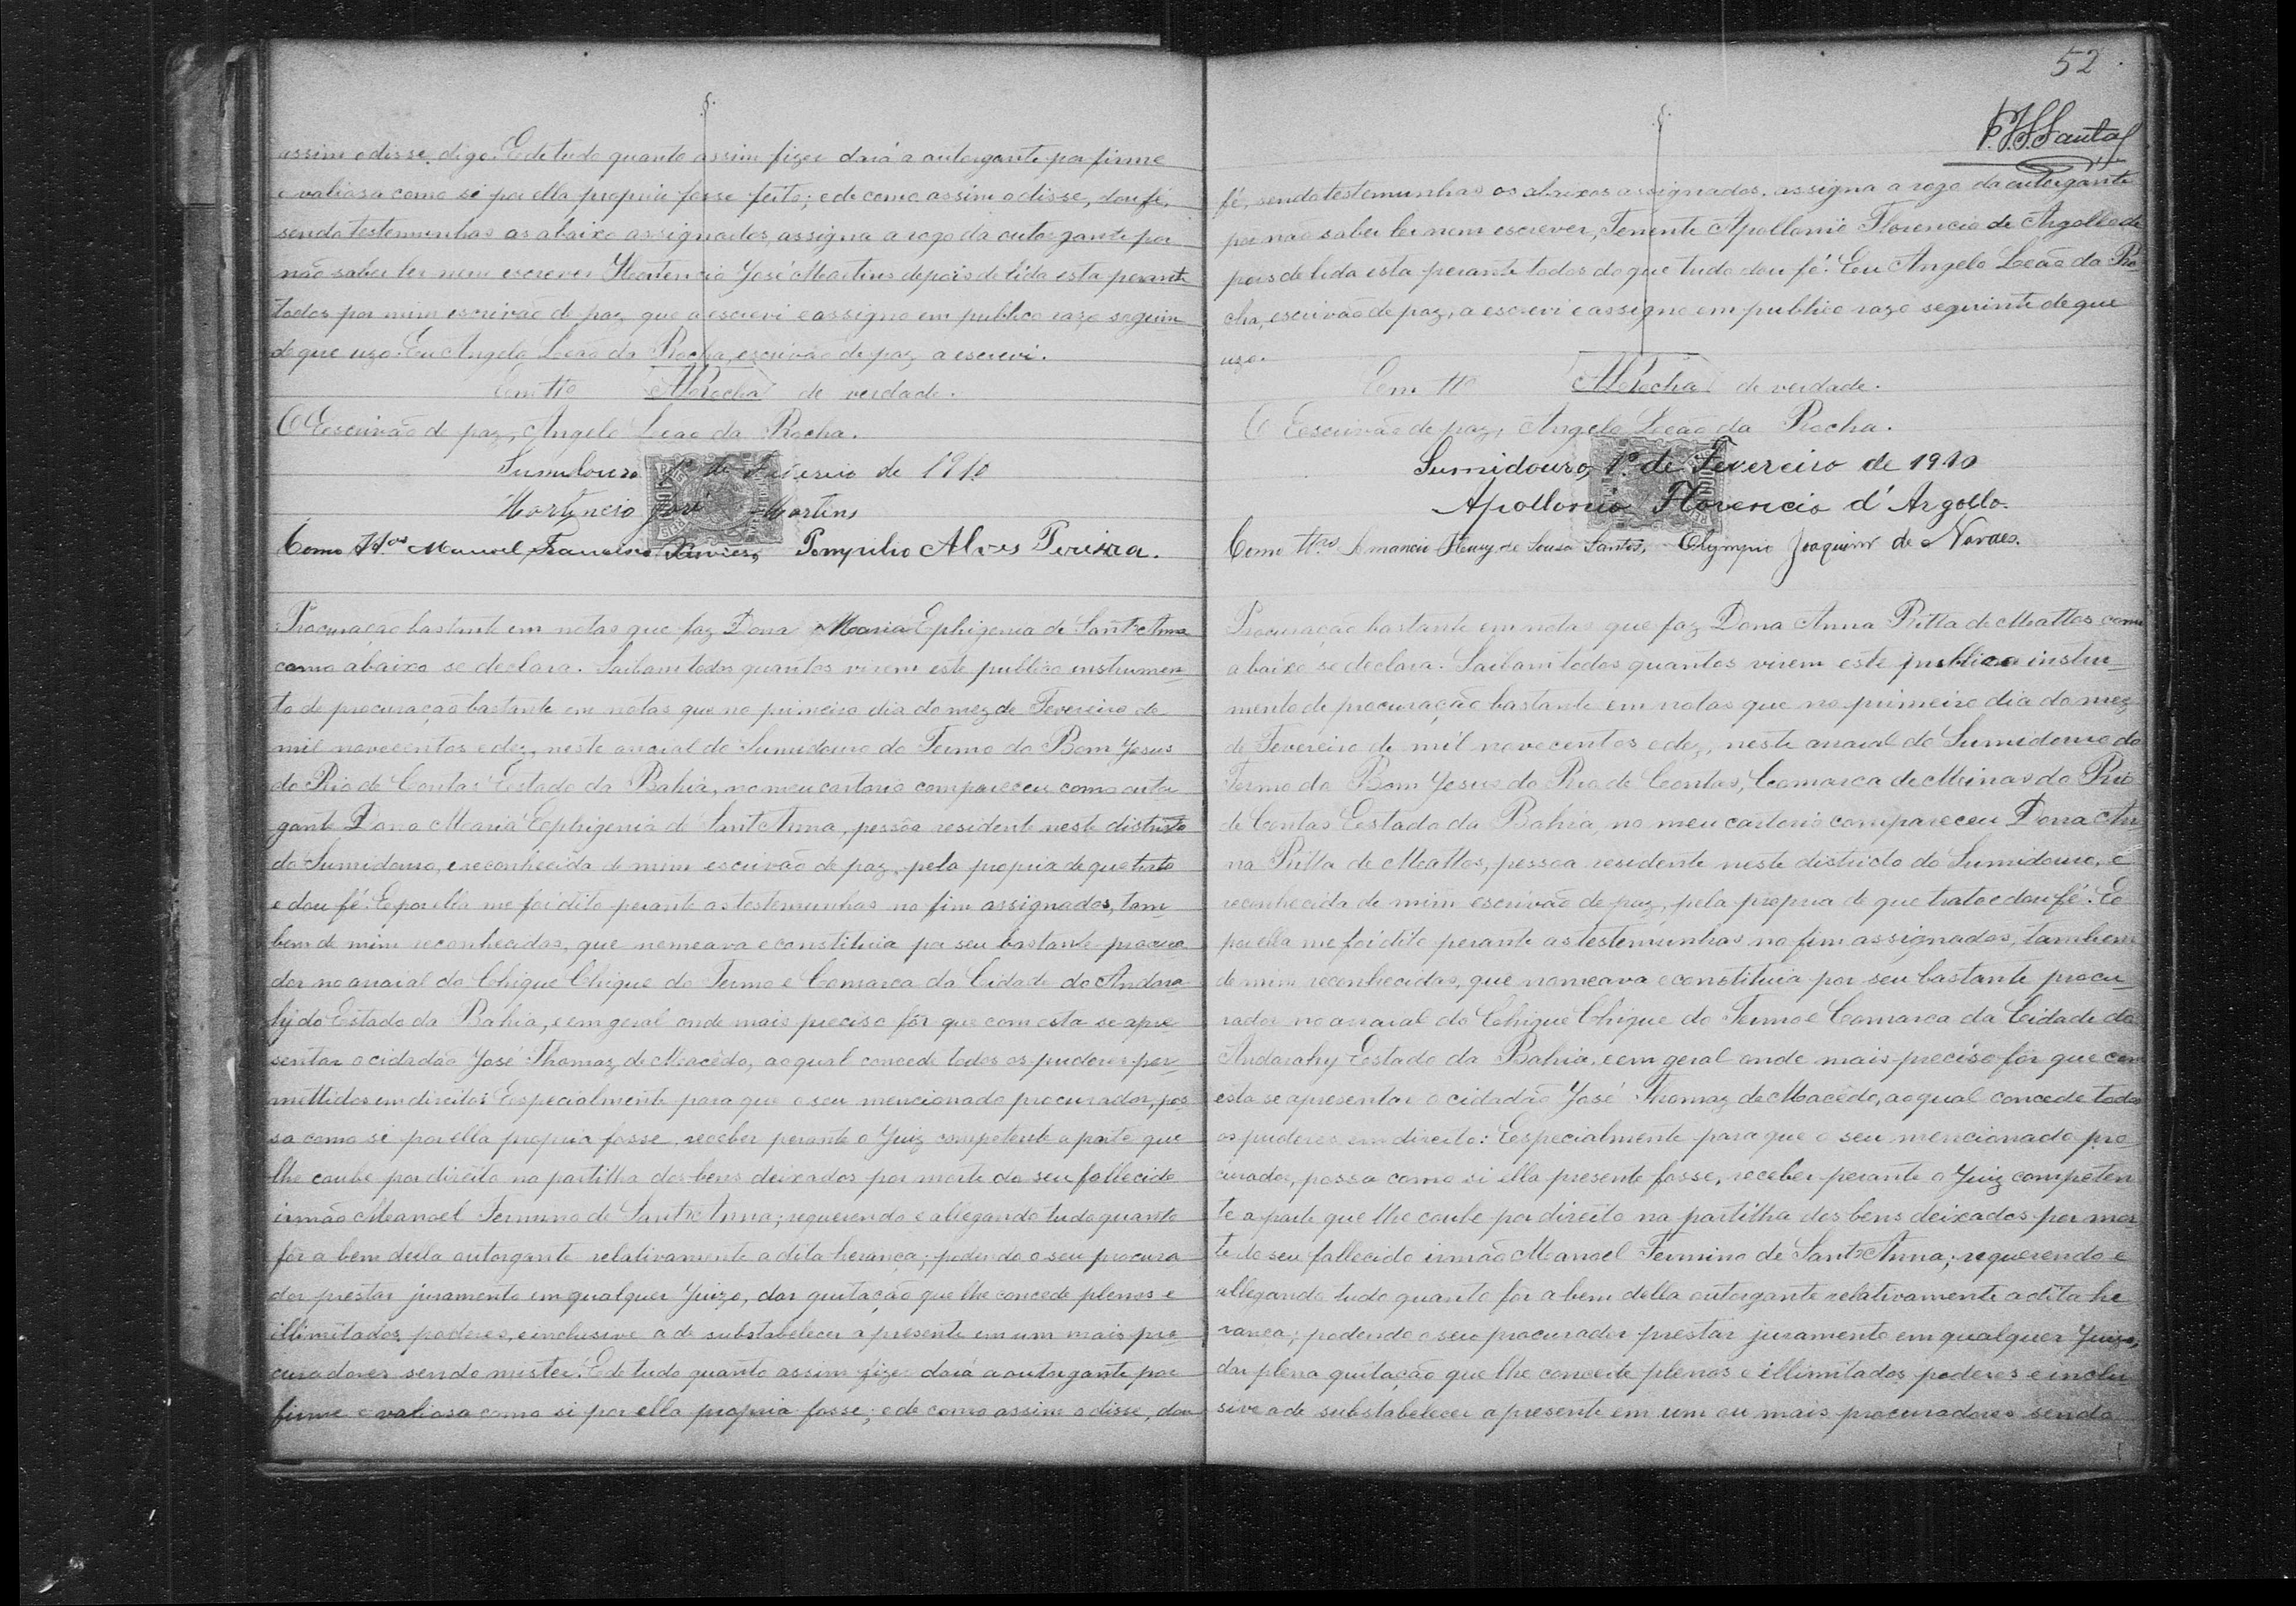 assim o disse, digo. E de tudo quanto assim fizer dará a outorgante por firme
e valiosa como si por ella propria fosse feito; e de como assim o disse, dou fé,
sendo testemunhas os abaixo assignados, assigna a rogo da outorgante por
não saber ler nem escrever Hortencio José Martins depois de lida esta perante
todos por mim escrivão de paz, que a escrevi e assigno em publico razo seguin
de que uzo. Eu Angelo Leão da Rocha, escrivão de paz a escrevi.
Em tto ALRocha de verdade.
O Escrivão de paz, Angelo Leão da Rocha.
Sumidouro 1º de Fevereiro de 1910
Hortencio José Martins
Como ttas Manoel Francisco Pompilio Alves Pereira.
Procuração bastante em notas que faz Dona Maria Ephigenia de Sant'Anna
como abaixo se declara. Saibam todos quantos virem este publico instrumen-
to de procuração bastante em notas que no primeiro dia do mez de Fevereiro de
mil novecentos e dez, neste arraial do Sumidouro do Termo do Bom Jesus
do Rio de Contas Estado da Bahia, no meu cartorio compareceu como outor
gante Dona Maria Ephigenia de Sant'Anna, pessôa residente neste districto
do Sumidouro, e reconhecida de mim escrivão de paz, pela propria de que trato
e dou fé. E por ella me foi dito perante as testemunhas no fim assignados, tam-
bem de mim reconhecidos, que nomeava e constituia por seu bastante procura
dor no arraial do Chique Chique do Termo e Comarca da Cidade do Andara-
hy do Estado da Bahia, e em geral onde mais preciso fôr que com esta se apre
sentar o cidadão José Thomaz de Macêdo, ao qual concede todos os puderes per-
mettidos em direito: Especialmente para que o seu mencionado procurador, pos
sa como si por ella propria fosse, receber perante o Juiz competente a parte que
lhe coube por direito na partilha dos bens deixados por morte do seu fallecido
irmão Manoel Firmino de Sant'Anna; requerendo e allegando tudo quanto
fôr a bem della outorgante relativamente a dita herança; podendo o seu procura
dor prestar juramento em qualquer Juizo, dar quitação que lhe concede plenos e
illimitados poderes, e inclusive a de substabelecer a presente em um mais pro-
curadores sendo mister. E de tudo quanto assim fizer dará a outorgante por
firme e valiosa como si por ella propria fosse; e de como assim o disse, dou
52
fé, sendo testemunhas os abaixos assignados. assigna a rogo da outorgante
por não saber ler nem escrever, Tenente Apollonio Florencio de Argollo de
pois de lida esta perante todos do que tudo dou fé. Eu Angelo Leão da Ro-
cha, escrivão de paz, a escrevi e assigno em publico razo seguinte de que
uzo.
Em tto ALRocha de verdade.
O Escrivão de paz, Angelo Leão da Rocha.
Sumidouro, 1º de Fevereiro de 1910
Apollonio Florencio d'Argollo.
Como ttas Amancio Fleury de Souza Santos, Olympio Joaquim de Novaes.
Procuração bastante em notas que faz Dona Anna Ritta de Mattos como
abaixo se declara. Saibam todos quantos virem este publico instru-
mento de procuração bastante em notas que no primeiro dia do mez
de Fevereiro de mil novecentos e dez, neste arraial do Sumidouro do
Termo do Bom Jesus do Rio de Contas, Comarca de Minas do Rio
de Contas Estado da Bahia, no meu cartorio compareceu Dona An
na Ritta de Mattos, pessoa residente neste districto do Sumidouro, e
reconhecida de mim escrivão de paz, pela propria de que trato e dou fé. E
por ella me foi dito perante as testemunhas no fim assignados, tambem
de mim reconhecidas, que nomeava e constituia por seu bastante procu-
rador no arraial do Chique Chique do Termo e Comarca da Cidade do
Andarahy Estado da Bahia, e em geral onde mais preciso fôr que com
esta se apresentar o cidadão José Thomaz de Macêdo, ao qual concede todos
os puderes em direito: Especialmente para que o seu mencionado pro-
curador, possa como si ella presente fosse, receber perante o Juiz competen
te a parte que lhe coube por direito na partilha dos bens deixados por mor
te do seu fallecido irmão Manoel Firmino de Sant'Anna; requerendo e
allegando tudo quanto fôr a bem della outorgante relativamente a dita he
rança; podendo o seu procurador prestar juramento em qualquer Juizo,
dar plena quitação que lhe concede plenos e illimitados poderes e inclu-
sive a de substabelecer a presente em um ou mais procuradores sendo